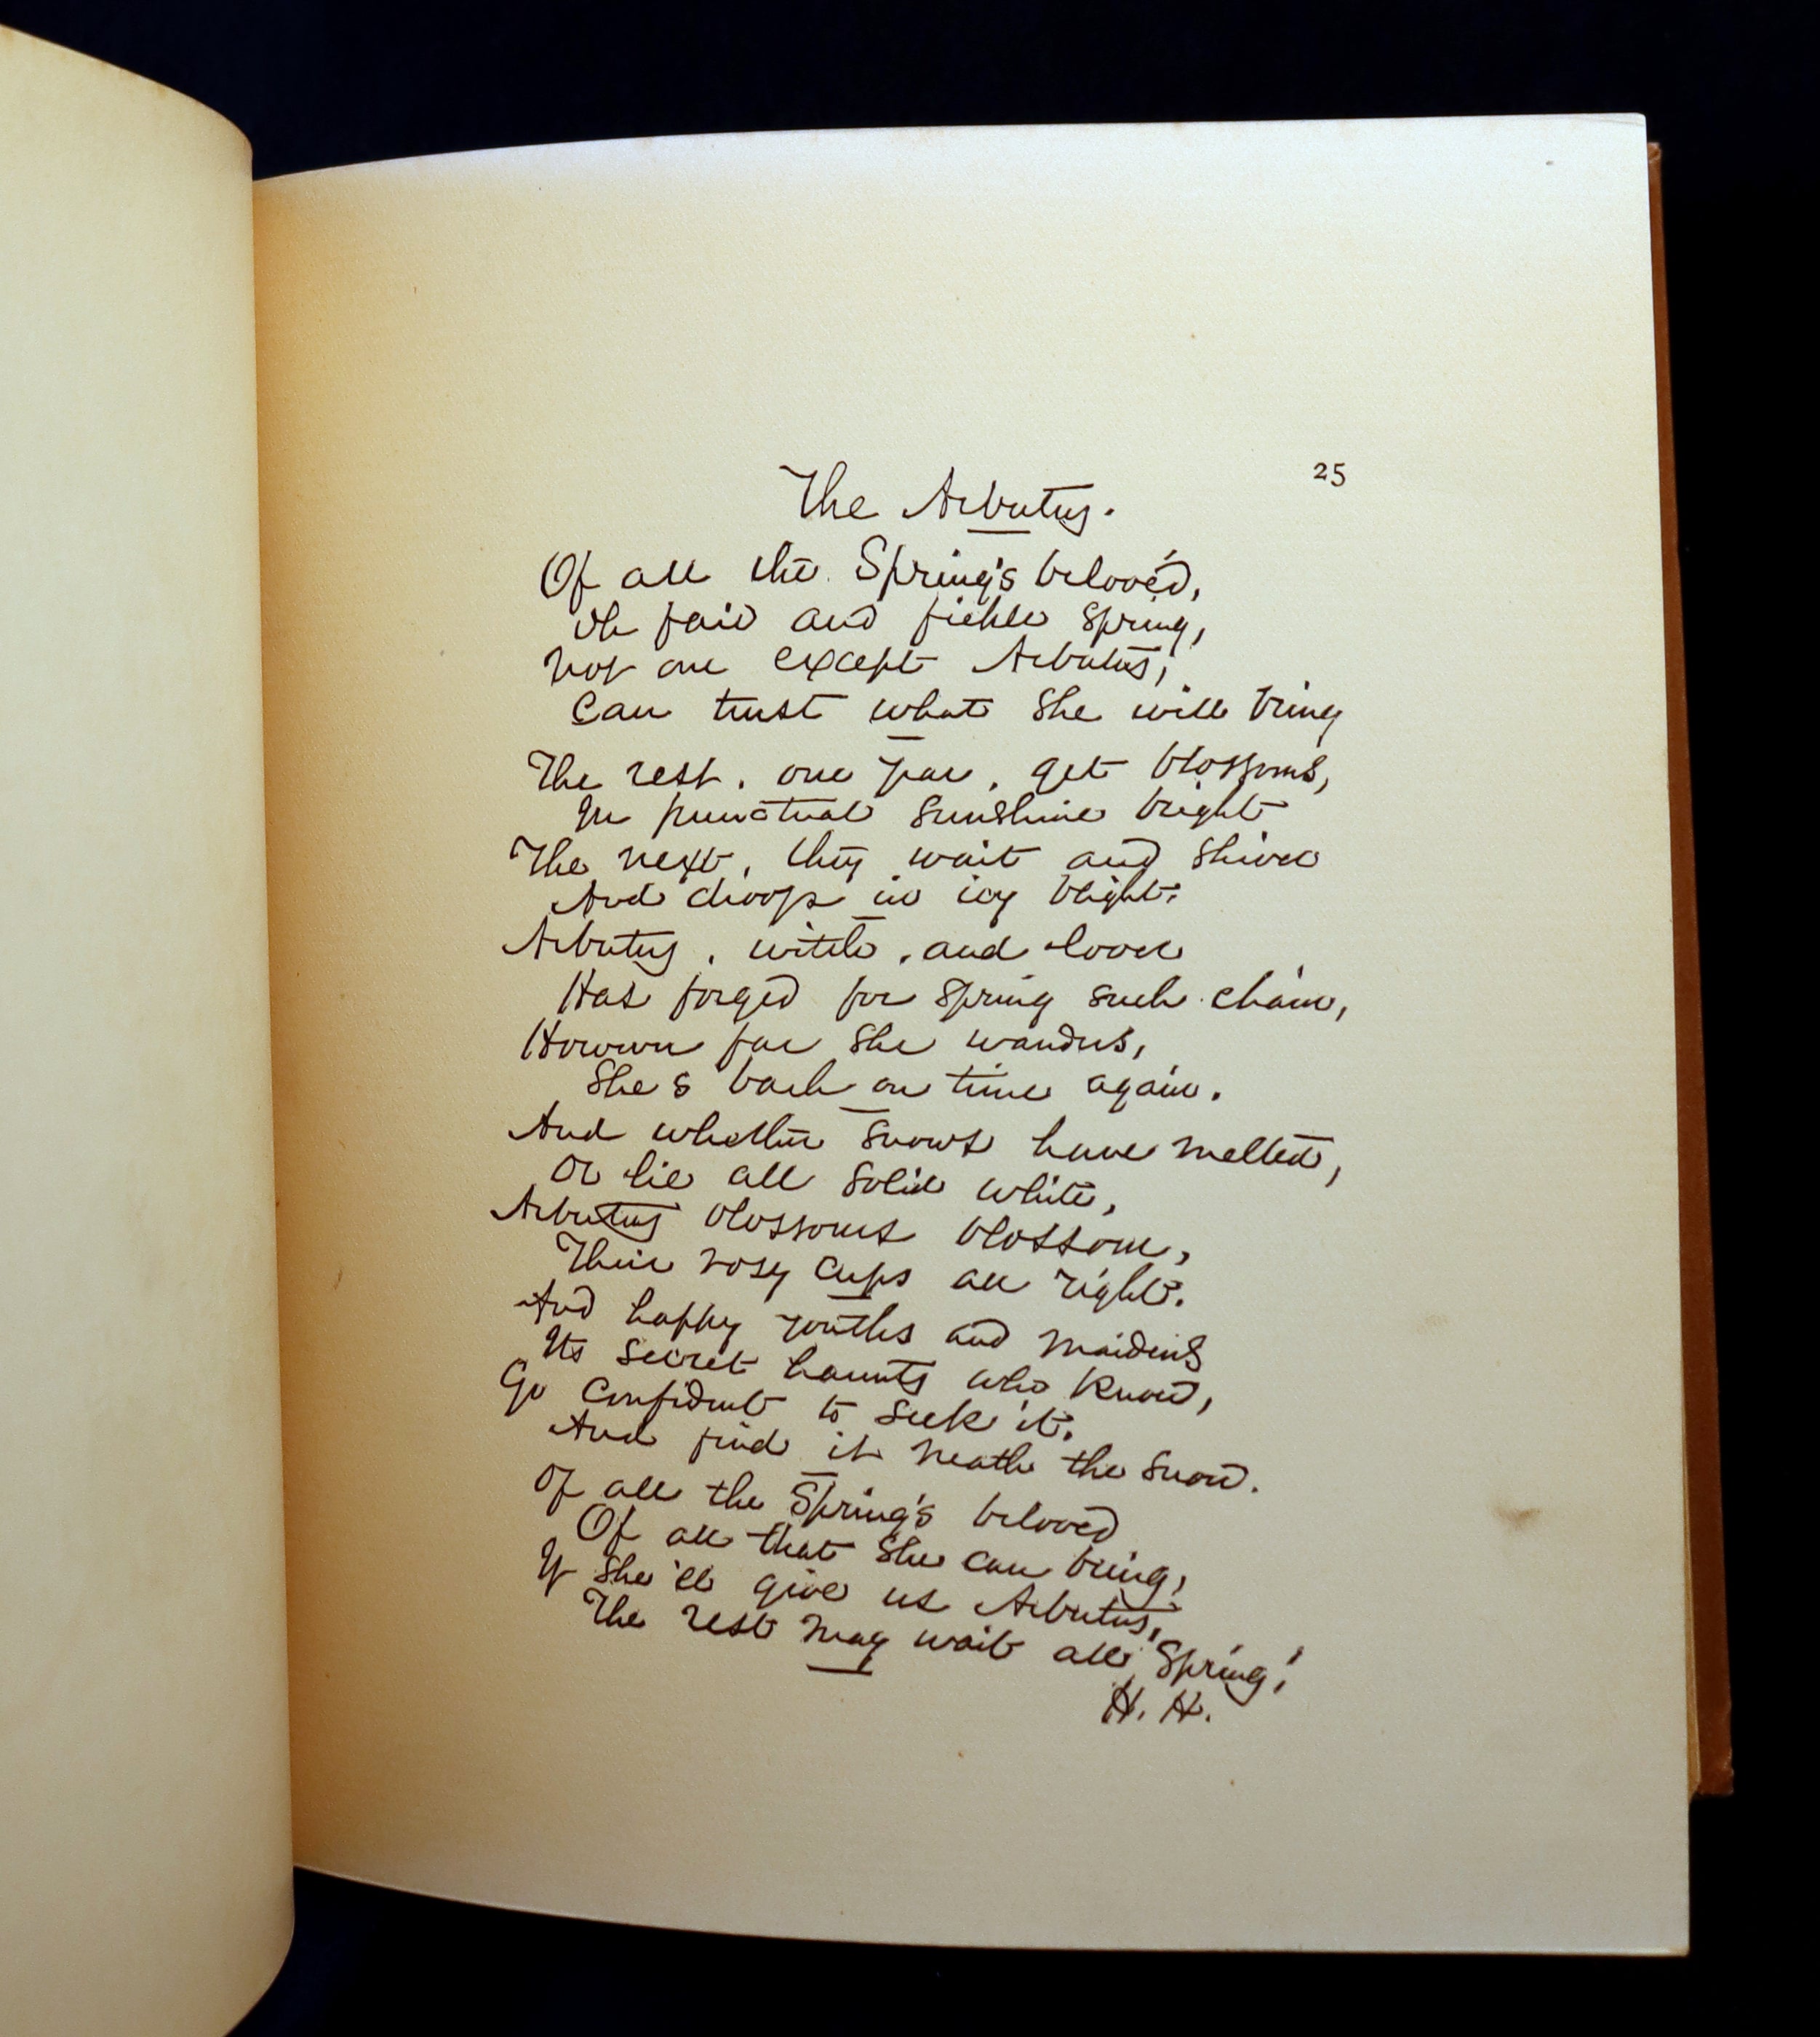 25
The Arbutus.
Of all the Spring's beloved,
Oh fair and fickle Spring,
Not one except Arbutus,
Can trust what she will bring
The rest, one year, get blossoms,
In punctual sunshine bright
The next, they wait and shiver
And droop in icy blight.
Arbutus, with
Has forged for Spring such chain,
However far she wanders,
She's back on time again.
And whether snows have melted,
Or lie all solid white,
Arbutus blossoms blossom,
Their rosy cups all right.
And happy youths and maidens
Its secret haunts who know,
Go confident to seek it,
And find it neath the snow.
Of all the Spring's beloved
Of all that she can bring,
If she'll give us Arbutus,
The rest may wait all Spring!
H. H.